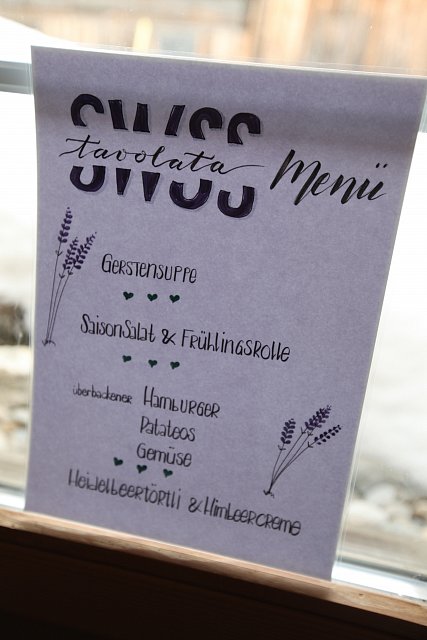 SWSS
tavolata
Menü
Gerstensuppe
SaisonSalat & Frühlingsrolle
überbackener Hamburger
Patateos
Gemüse
Heidelbeertörtli & Himbeercreme